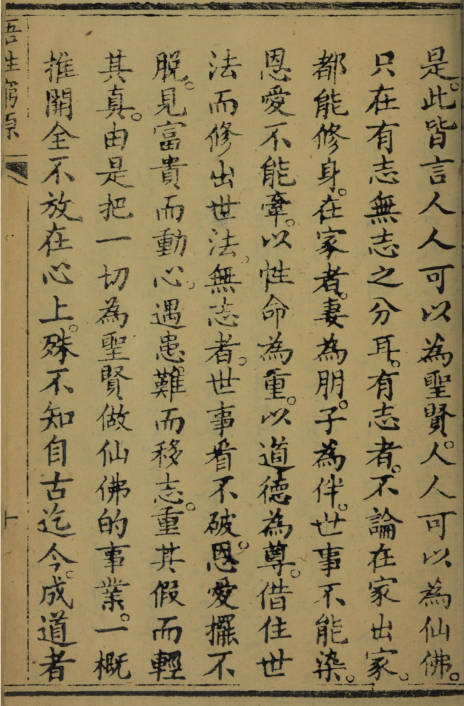 是。此皆言人人可以為聖賢。人人可以為仙佛。
只在有志無志之分耳。有志者。不論在家出家。
都能修身。在家者。妻為朋。子為伴。世事不能染。
恩愛不能牽。以性命為重。以道德為尊。借住世
法而修出世法。無志者。世事看不破。恩愛擺不
脫。見富貴而動心。遇患難而移志。重其假而輕
其真。由是把一切為聖賢做仙佛的事業。一概
推開全不放在心上。殊不知自古迄今。成道者
十